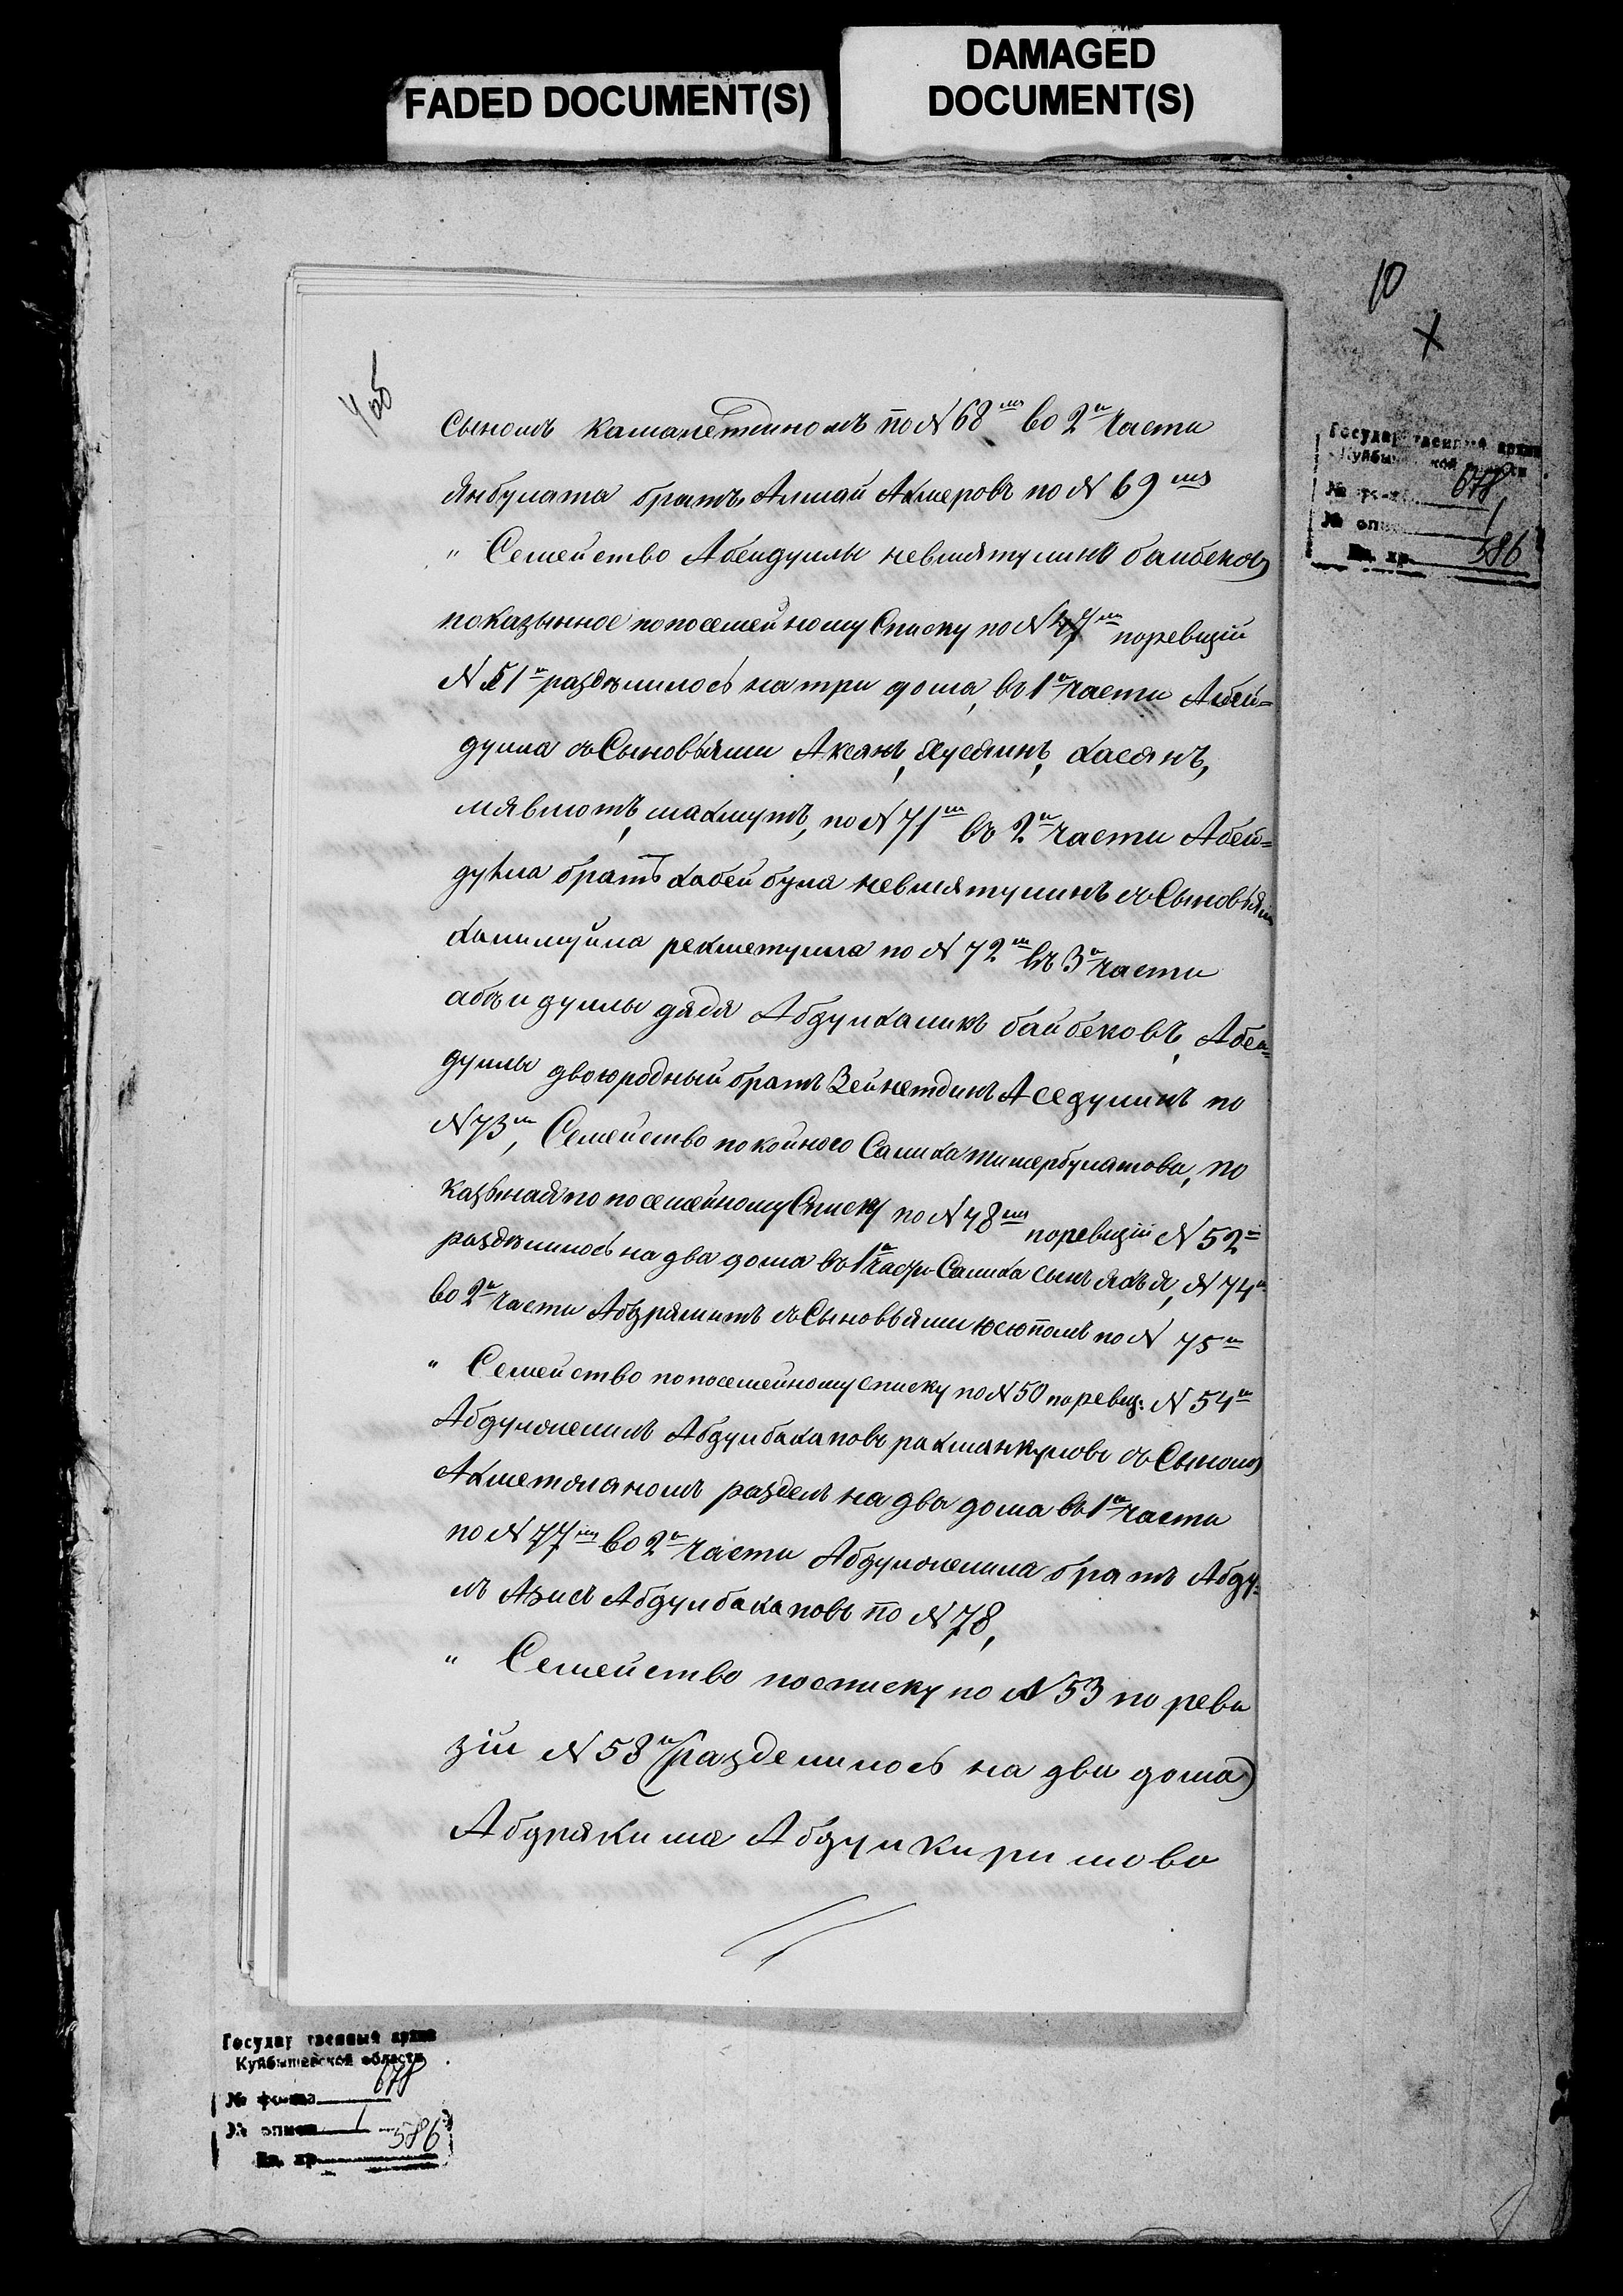 FADED DOCUMENT(S)
DAMAGED
DOCUMENT(S)
10
Х
4об
Государственный архив
Куйбышевской области
№ фонда 678
№ описи 1
Ед. хр. 586
Сыномъ Камалетдиномъ по N 68мъ во 2й части
Янбулата братъ Алмай Ахмеровъ по N 69мъ
" Семейство Абейдуллы невмятулинъ баибековъ
показынное попосемейному Списку по N 47мъ поревизіи
N 51й раздѣлилось на три дома, въ 1й части Абей=
дулла съ Сыновьями Аксянъ, Хусяинъ, Хасянъ,
мявлютъ, махмутъ, по N 71мъ въ 2й части Абей=
дулла братъ Хабейбула невмятулинъ съ Сыновьями
Халимулла рехметулла по N 72мъ въ 3й части
абъидуллы дядя Абдулхаликъ байбековъ, Абеи=
дуллы двоюродный братъ Зейнетдинъ Аседулинъ по
N 73мъ, Семейство покойного Салиха тимербулатова, по
казыная по посемейному Списку по N 48мъ поревизіи N 52й
раздѣлилось на два дома во 1й части Салиха сынъ Яхъя, N 74й
во 2й части Абдрямитъ съ Сыновьями Юсюпомъ по N 75й
" Семейство попосемейному списку по N 50 поревиз: N 54й
Абдулженилъ Абдулбакаповъ рахманкуловъ съ Сыномъ
Ахметжаномъ разделъ на два дома въ 1й части
по N 77мъ во 2й части Абдулженила братъ Абду=
лъ Азисъ Абдулбакаповъ по N 78,
" Семейство посписку по N 53 по реви
зіи N 58й (разделилось на два дома)
Абдрякима Абдулкиримова
Государственный архив
Куйбышевской области
№ фонда 678
№ описи 1
Ед. хр. 586